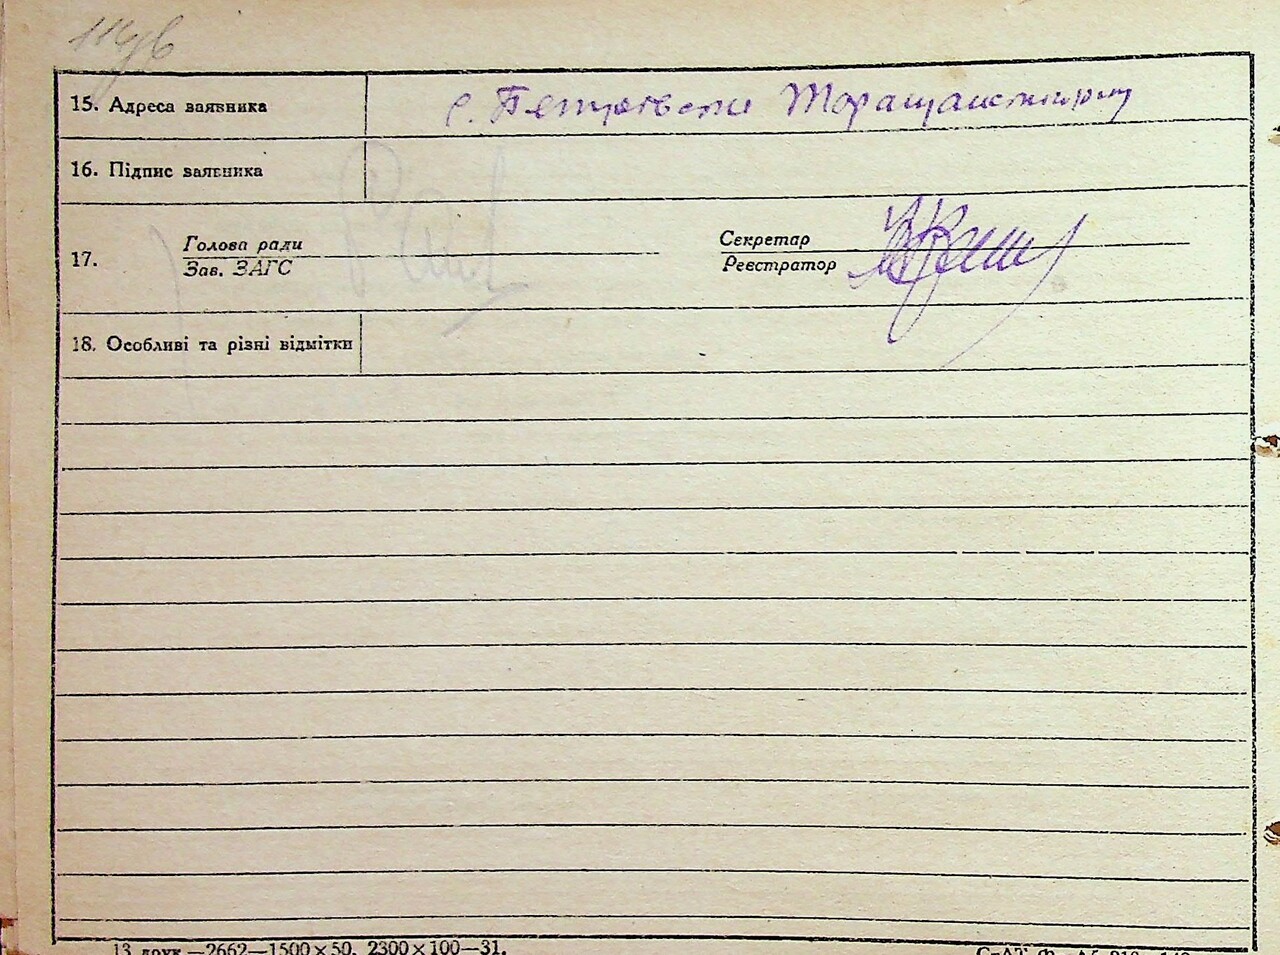 15. Адреса заявника
с. Петрівськи Таращанського р-ну
16. Підпис заявника
17. Голова ради
Зав. ЗАГС
Секретар
Реєстратор
18. Особливі та різні відмітки
13 друк.—2662—1500×50. 2300×100—31.